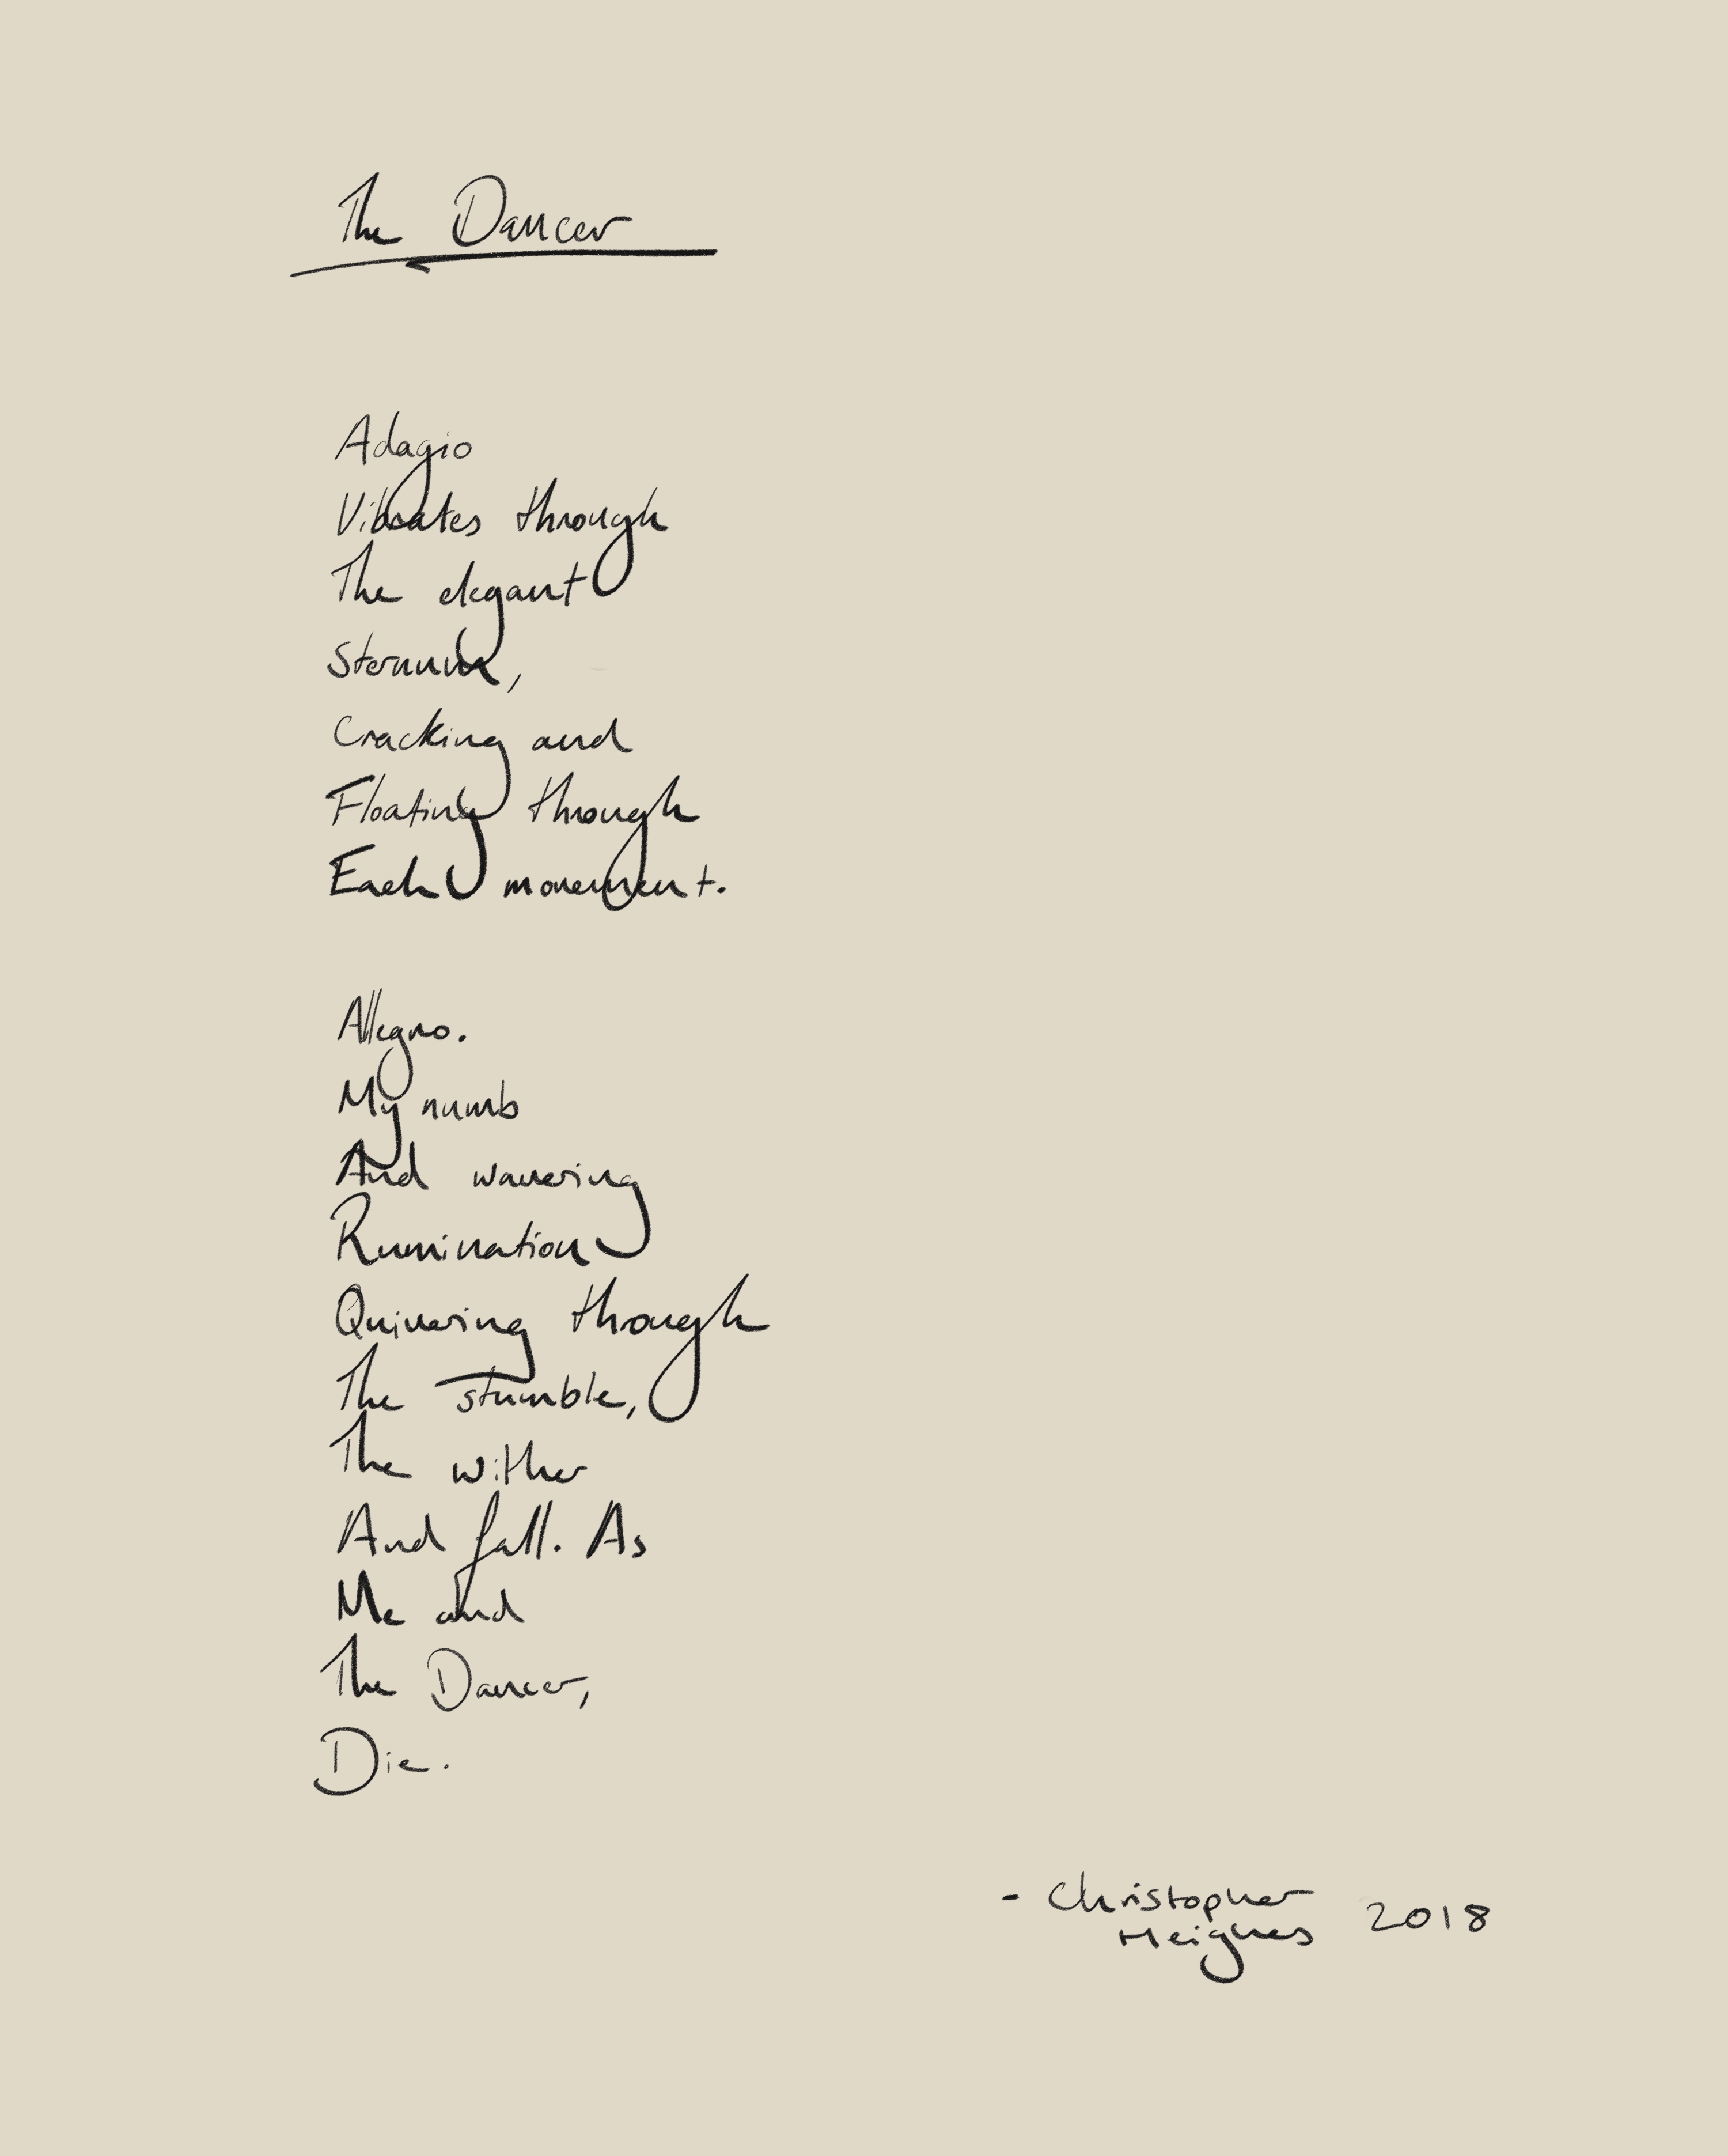 The Dancer
Adagio
Vibrates through
The elegant
Sternum,
Cracking and
Floating through
Each movement.
Allegro.
My numb
And wavering
Rumination
Quivering through
The stumble,
The wither
And fall. As
Me and
The Dancer,
Die.
- Christopher 2018
Meignes